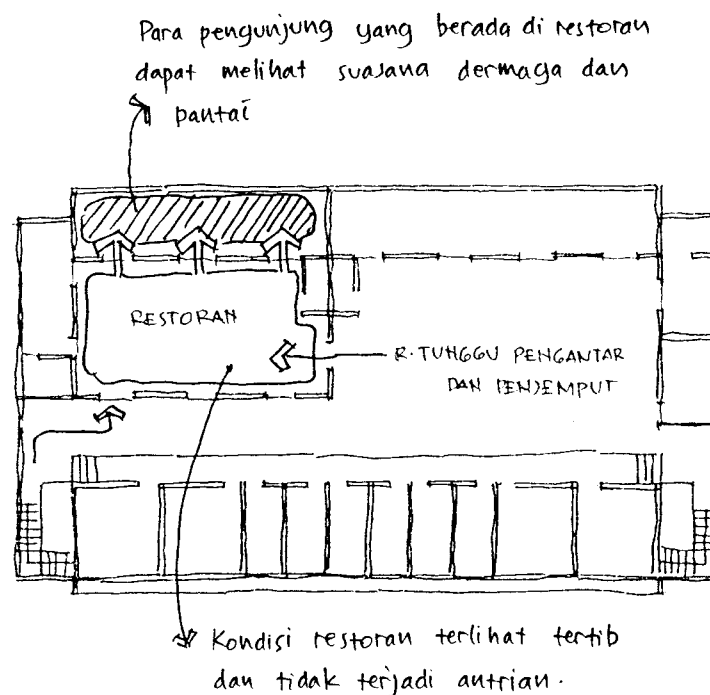 Para pengunjung yang berada di restoran
dapat melihat suasana dermaga dan
pantai
RESTORAN
R. TUNGGU PENGANTAR
DAN PENJEMPUT
Kondisi restoran terlihat tertib
dan tidak terjadi antrian.